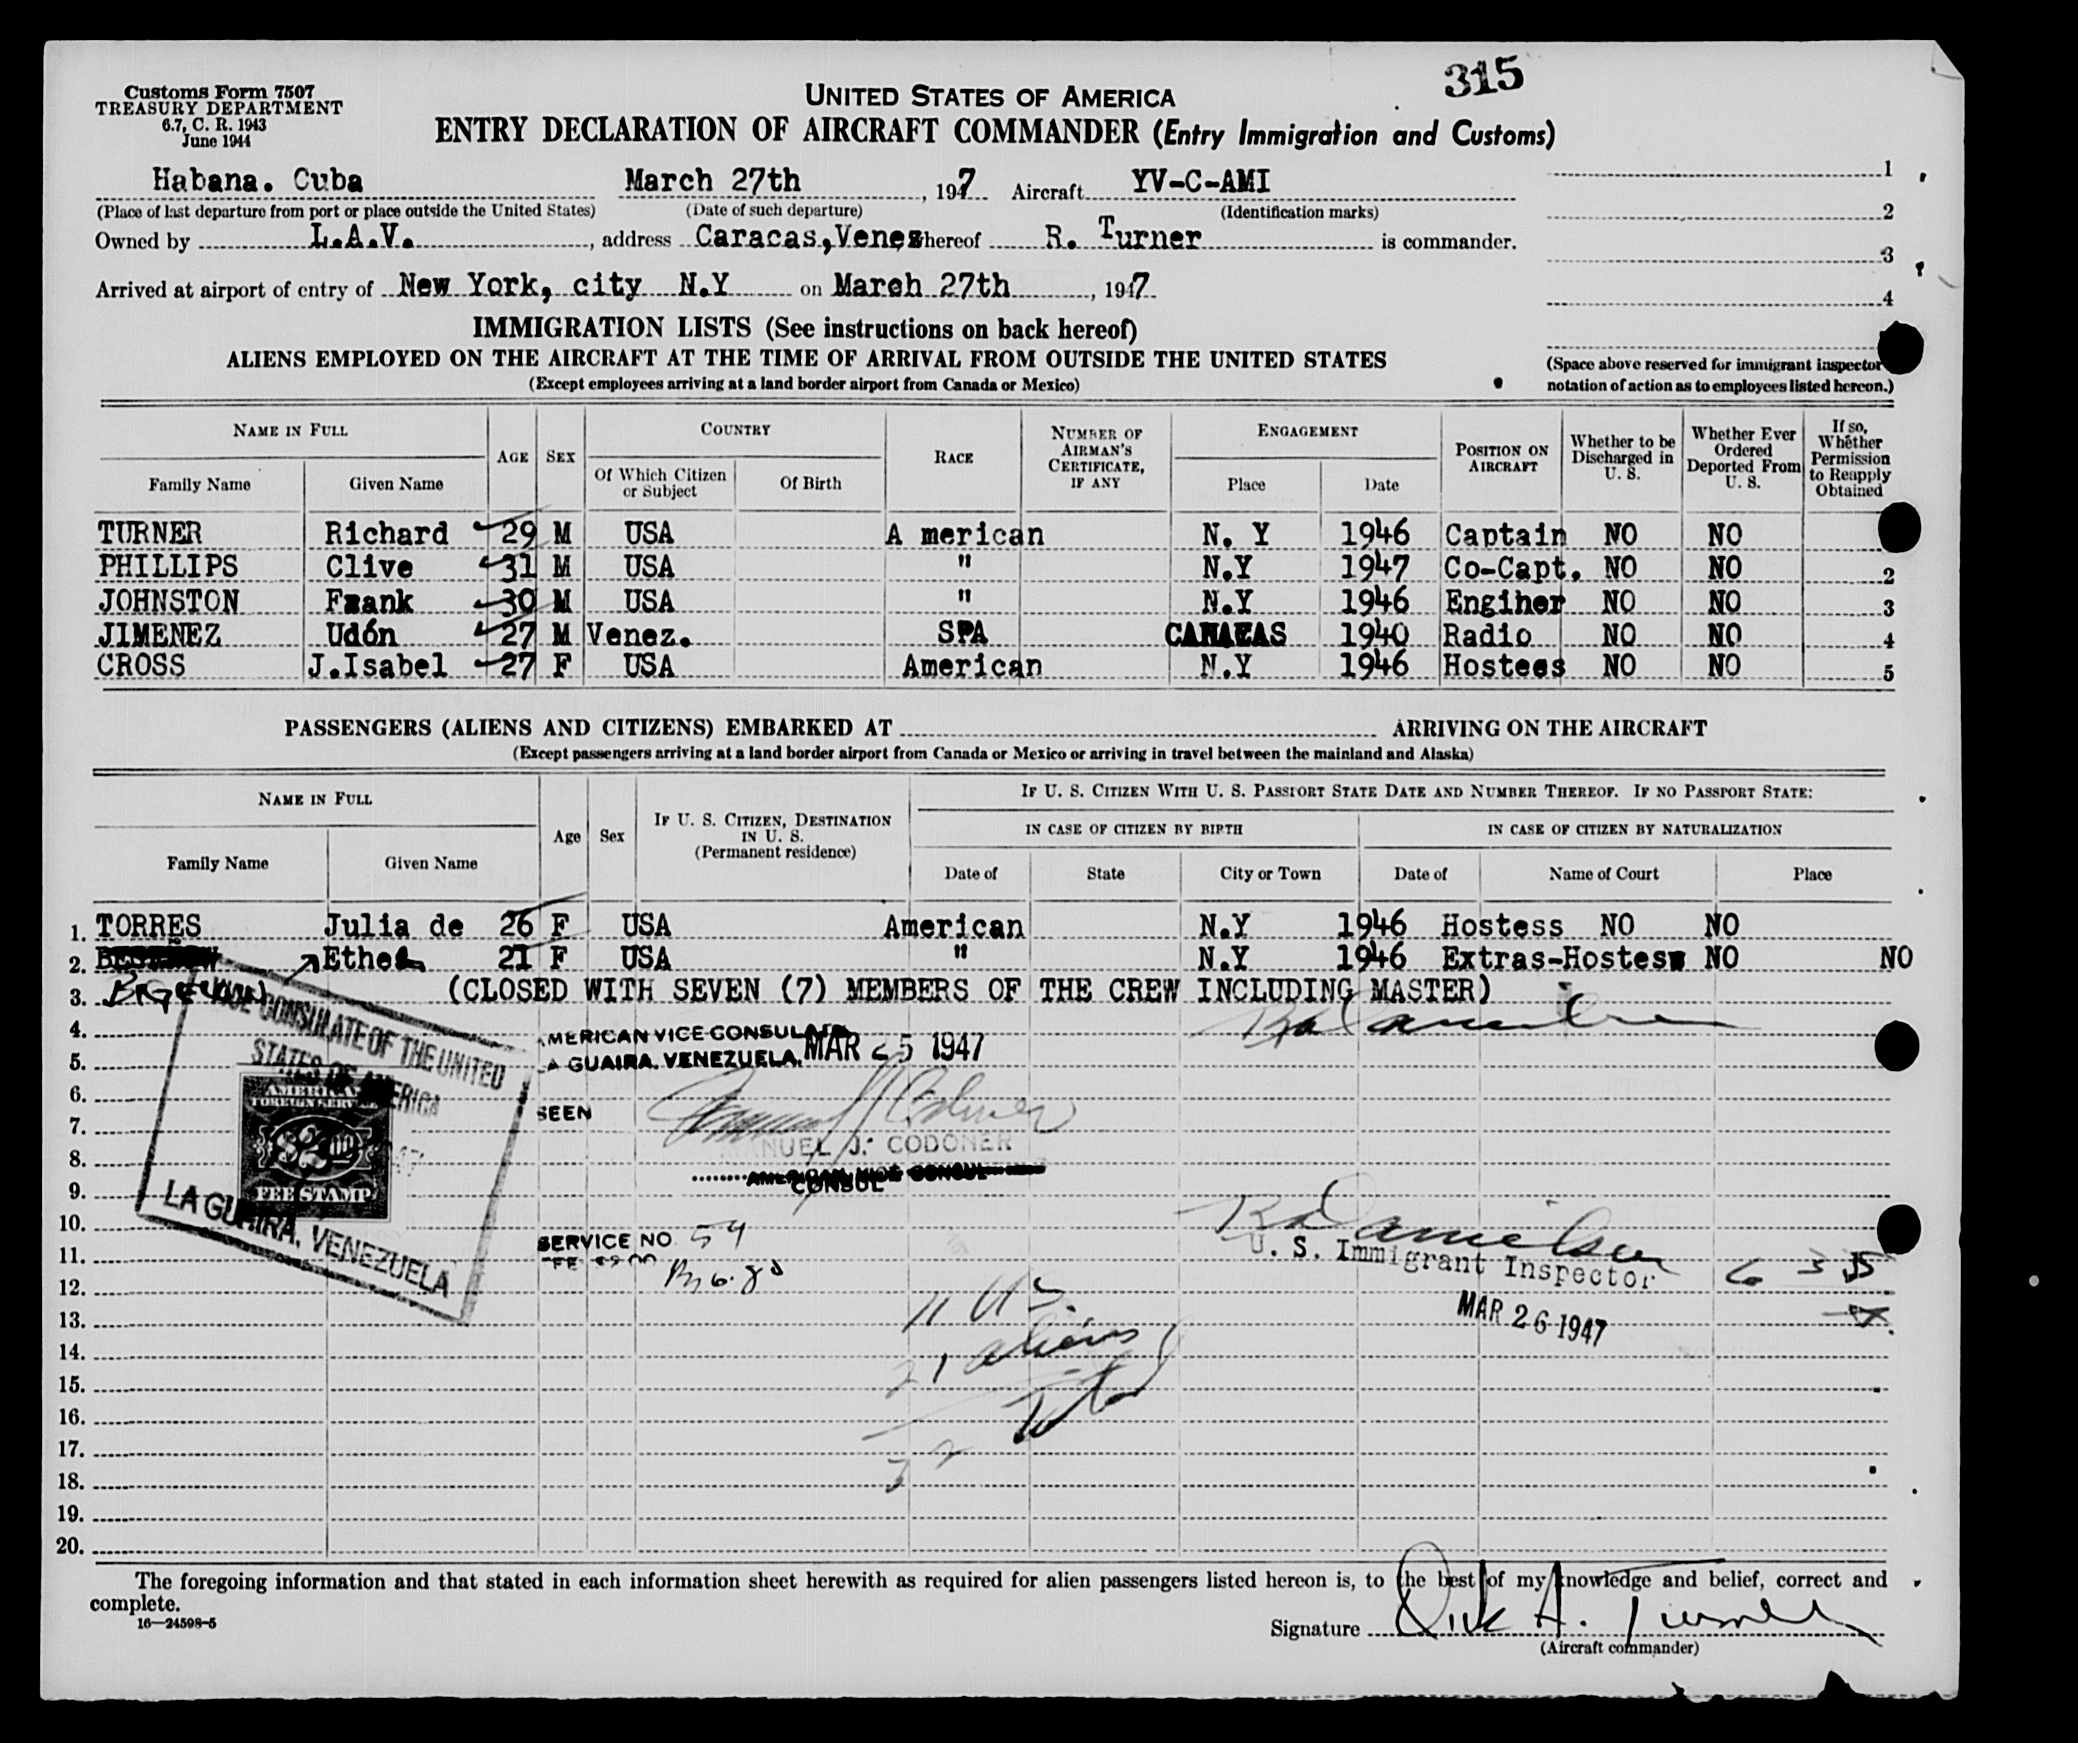 315
Customs Form 7507
TREASURY DEPARTMENT
6.7, C. R. 1943
June 1944
UNITED STATES OF AMERICA
ENTRY DECLARATION OF AIRCRAFT COMMANDER (Entry Immigration and Customs)
Habana. Cuba March 27th, 1947 Aircraft YV-C-AMI
(Place of last departure from port or place outside the United States) (Date of such departure) (Identification marks)
Owned by L.A.V., address Caracas,Venez hereof R. Turner is commander.
Arrived at airport of entry of New York, city N.Y on March 27th, 1947
1
2
3
4
IMMIGRATION LISTS (See instructions on back hereof)
ALIENS EMPLOYED ON THE AIRCRAFT AT THE TIME OF ARRIVAL FROM OUTSIDE THE UNITED STATES
(Except employees arriving at a land border airport from Canada or Mexico)
(Space above reserved for immigrant inspector
notation of action as to employees listed hereon.)
NAME IN FULL AGE SEX COUNTRY RACE NUMBER OF AIRMAN'S CERTIFICATE, IF ANY ENGAGEMENT POSITION ON AIRCRAFT Whether to be Discharged in U. S. Whether Ever Ordered Deported From U. S. If so, Whether Permission to Reapply Obtained
Family Name Given Name Of Which Citizen or Subject Of Birth Place Date
TURNER Richard 29 M USA A merican N. Y 1946 Captain NO NO
PHILLIPS Clive 31 M USA " N.Y 1947 Co-Capt. NO NO 2
JOHNSTON Frank 30 M USA " N.Y 1946 Engiher NO NO 3
JIMENEZ Udón 27 M Venez. SPA CARACAS 1940 Radio NO NO 4
CROSS J.Isabel 27 F USA American N.Y 1946 Hostees NO NO 5
PASSENGERS (ALIENS AND CITIZENS) EMBARKED AT ARRIVING ON THE AIRCRAFT
(Except passengers arriving at a land border airport from Canada or Mexico or arriving in travel between the mainland and Alaska)
NAME IN FULL Age Sex IF U. S. CITIZEN, DESTINATION IN U. S. (Permanent residence) IF U. S. CITIZEN WITH U. S. PASSPORT STATE DATE AND NUMBER THEREOF. IF NO PASSPORT STATE:
IN CASE OF CITIZEN BY BIRTH IN CASE OF CITIZEN BY NATURALIZATION
Family Name Given Name Date of State City or Town Date of Name of Court Place
1. TORRES Julia de 26 F USA American N.Y 1946 Hostess NO NO
2. Ethel 21 F USA " N.Y 1946 Extras-Hostess NO NO
3. (CLOSED WITH SEVEN (7) MEMBERS OF THE CREW INCLUDING MASTER)
4.
5.
6.
7.
8.
9.
10.
11.
12.
13.
14.
15.
16.
17.
18.
19.
20.
VICE CONSULATE OF THE UNITED
STATES OF AMERICA
AMERICAN
FOREIGN SERVICE
$2.00
FEE STAMP
LA GUAIRA, VENEZUELA
AMERICAN VICE CONSULATE
LA GUAIRA. VENEZUELA. MAR 25 1947
SEEN
MANUEL J. CODONER
AMERICAN VICE CONSUL
CONSUL
SERVICE NO. 54
FEE $2.00
Bs 6.70
R A Danielson
U. S. Immigrant Inspector
MAR 26 1947
11 US.
21 aliens
32 Total
The foregoing information and that stated in each information sheet herewith as required for alien passengers listed hereon is, to the best of my knowledge and belief, correct and
complete.
16—24598-5
Signature Dick A. Turner
(Aircraft commander)